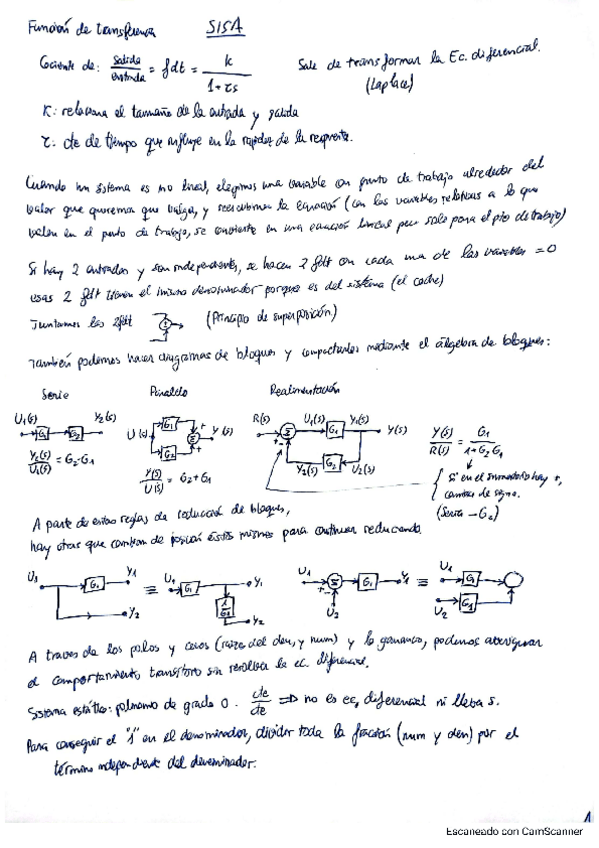 Función de transferencia SISA
Cociente de: salida/entrada = fdt = k/(1+τs) Sale de transformar la Ec. diferencial.
(Laplace)
K: relaciona el tamaño de la entrada y salida
τ: cte de tiempo que influye en la rapidez de la respuesta.
Cuando un sistema es no lineal, elegimos una variable con punto de trabajo alrededor del
valor que queremos que valga, y la ecuación (con las variables relativas a lo que
valen en el punto de trabajo, se convierte en una ecuación lineal pero solo para el pto de trabajo)
Si hay 2 entradas y son independientes, se hacen 2 fdt con cada una de las variables = 0
esas 2 fdt tienen el mismo denominador porque es del sistema (el coche)
Juntamos las 2fdt (Principio de superposición)
También podemos hacer diagramas de bloques y compactarlos mediante el álgebra de bloques:
Serie Paralelo Realimentación
U1(s) G1 G2 Y2(s) U(s) G1 G2 + + Y(s) R(s) Σ U1(s) G1 Y1(s) Y(s) Y(s)/R(s) = G1/(1+G2G1)
Y2(s)/U1(s) = G2·G1 Y(s)/U(s) = G2+G1 Y2(s) G2 U2(s) Si en el sumatorio hay +,
cambia de signo.
(Sería -G2)
A parte de estas reglas de reducción de bloques,
hay otras que cambian de posición éstos mismos para continuar reduciendo.
U1 G1 Y1 Y2 ≡ U1 G1 Y1 1/G1 Y2 U1 Σ + - U2 G1 Y1 ≡ U1 G1 U2 G1
A través de los polos y ceros (raíces del den, y num) y la ganancia, podemos averiguar
el comportamiento transitorio sin resolver la ec. diferencial.
Sistema estático: polinomio de grado 0. cte/cte ⇒ no es ec, diferencial ni lleva s.
Para conseguir el "1" en el denominador, dividir toda la fracción (num y den) por el
término independiente del denominador.
1
Escaneado con CamScanner